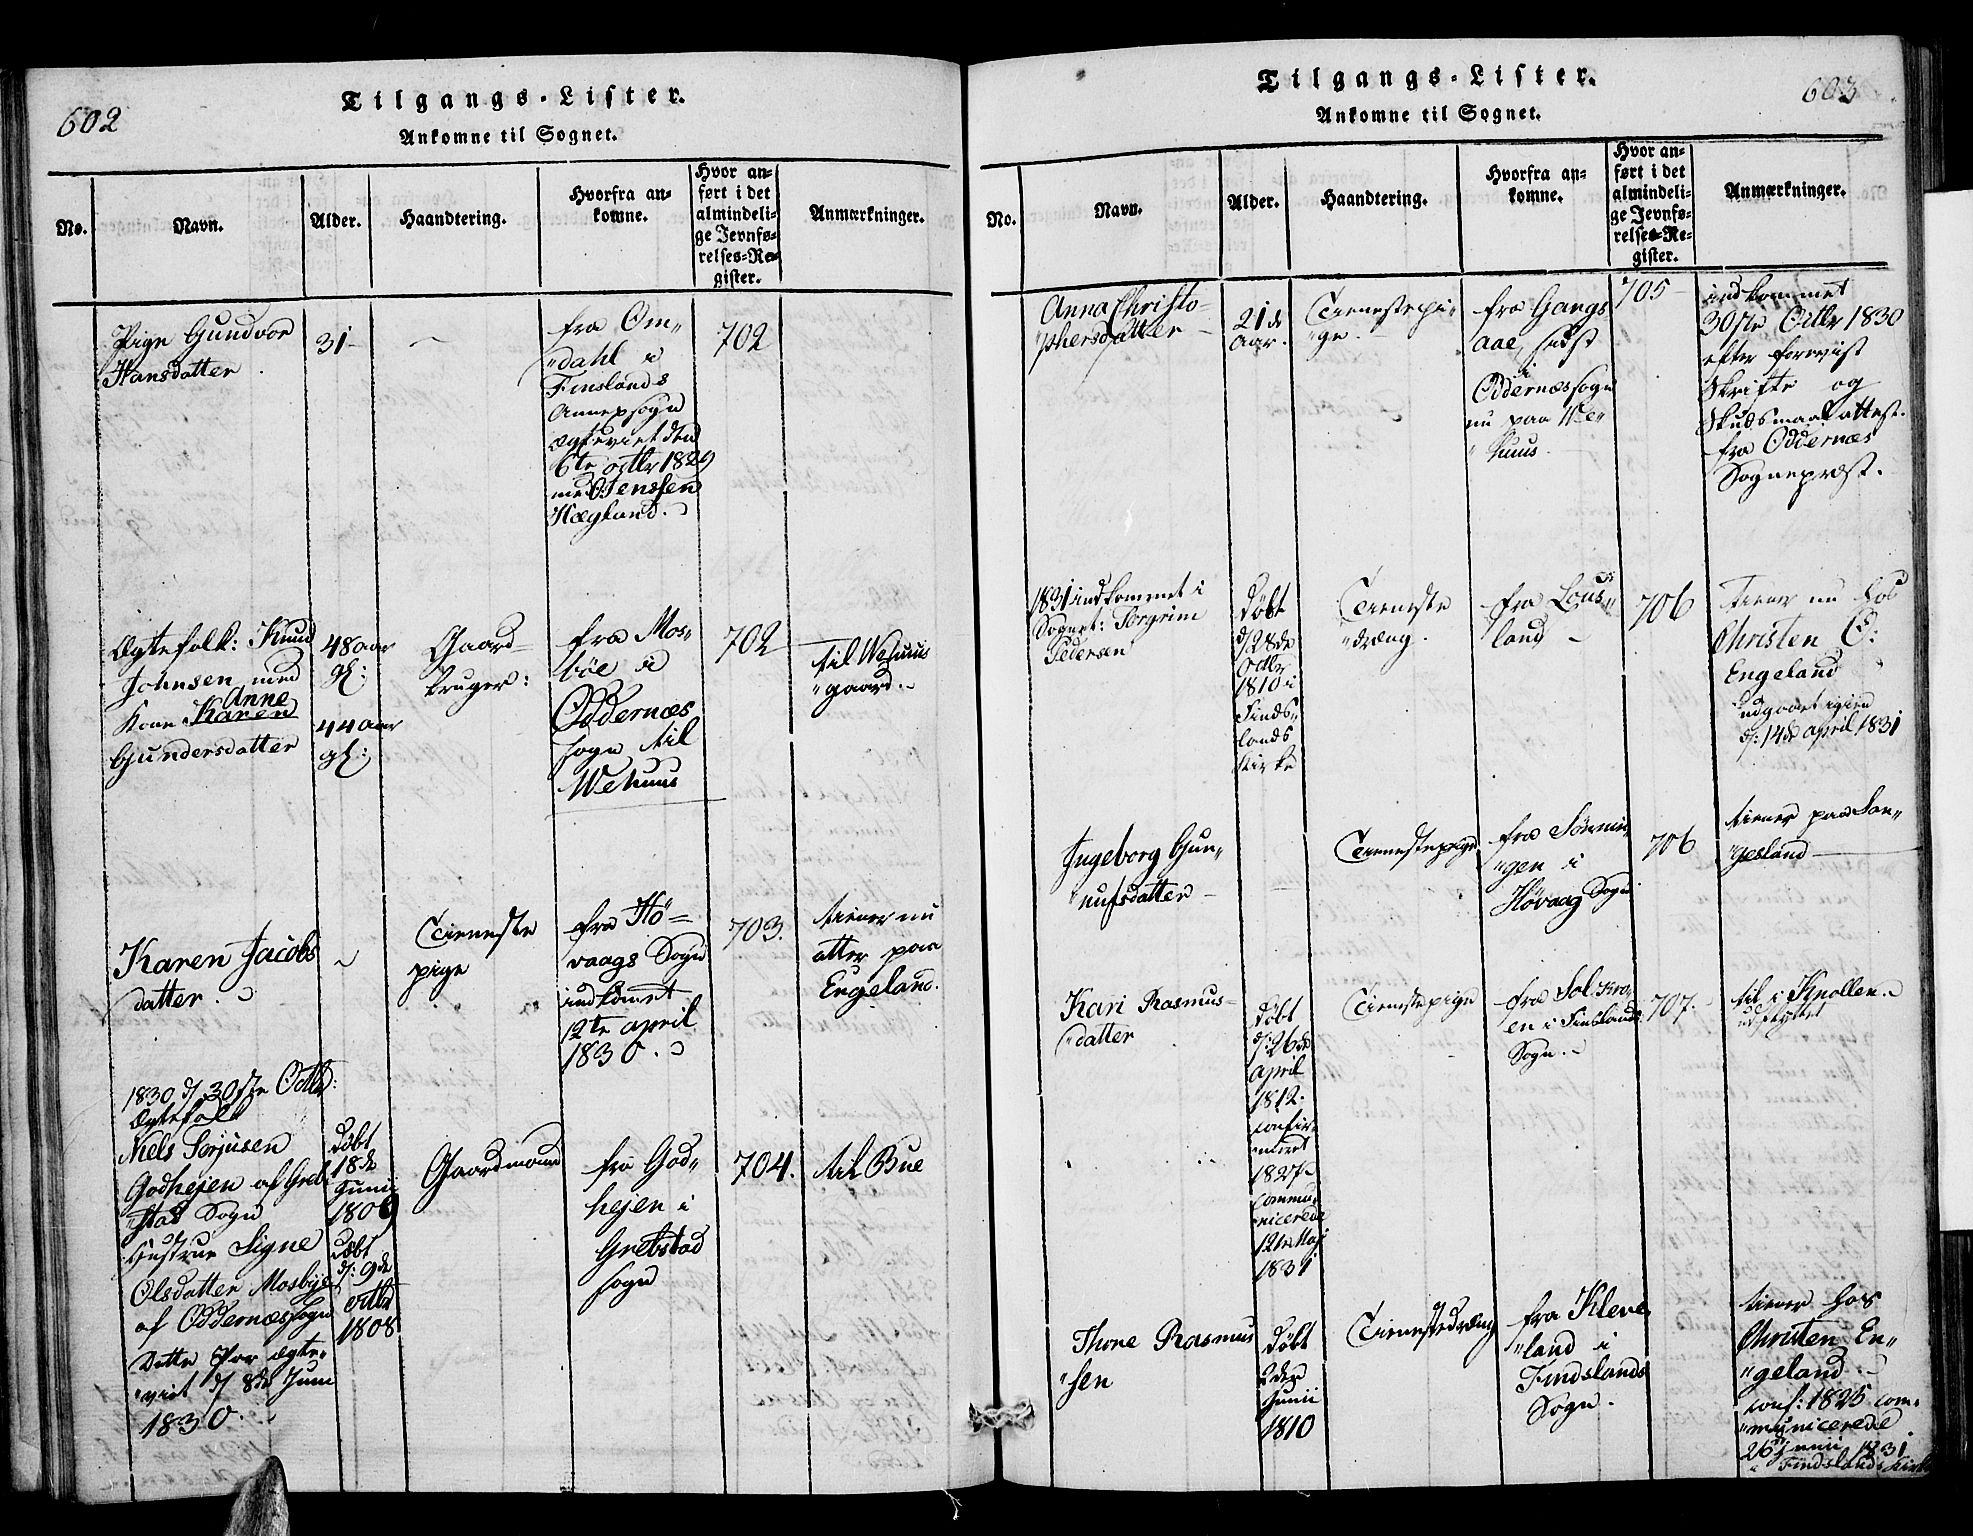 602
Tilgangs-Lister.
Ankomne til Sognet.
No.
Navn.
Alder.
Haandtering.
Hvorfra an-
komne.
Hvor an-
ført i det
almindeli-
ge Jevnfø-
relses-Re-
gister.
Anmærkninger.
Pige Gundvor
Hansdatter
31
fra Om-
dahl i
Finslands
Annexsogn
ægteviet den
6te octbr 1829
med O Jenssen
Hægland.
702
Ægtefolk: Knud
Johnsen med
Anne
Kone Karen
Gundersdatter
48 aar
gl:
44 aar
gl:
Gaard-
bruger:
fra Mos-
bøe i
Oddernæs
sogn til
Wehuus
702
til Wehuus
gaard.
Karen Jacobs
datter.
Tieneste
pige
fra Hø-
vaags Sogn
indkomet
12te april
1830.
703.
tiener nu
atter paa
Engeland.
1830 d/ 30ste Octbr:
Ægtefolk
Niels Terjusen
Godhejen af Greb-
stad Sogn
Hustrue Signe
Olsdatter Mosbye
af Oddernæs sogn
Dette Par ægte-
viet d/ 8de Juni
1830.
Døbt
18de
Junii
1806
Døbt
d: 9de
octbr
1808
Gaardmand
fra God-
hejen i
Grebstad
sogn
704.
til Bue
603
Tilgangs-Lister.
Ankomne til Sognet.
No.
Navn.
Alder.
Haandtering.
Hvorfra an-
komne.
Hvor an-
ført i det
almindeli-
ge Jevnfø-
relses-Re-
gister.
Anmærkninger.
Anna Christo-
phersdatter
21de
aar.
Tienestepi-
ge.
fra Gangs
aae, født
i
Oddernæs sogn
nu paa We-
huus
705
indkommet
30ste Octbr 1830
efter foreviist
Skrifte og
Skudsmaalsattest.
fra Oddernæs
Sognepræst.
1831 indkommet i
Sognet: Torgrim
Pedersen
Døbt
d/28de
Octbr
1810 i
Finds-
lands
Kirke
Tieneste
dræng.
fra Lous-
land
706
tiener nu hos
Christen O:
Engeland
udgaaet igien
d: 14de april 1831
Ingeborg Gun-
nufsdatter
Tienestepige
fra Tømmin-
gen i
Høvaag Sogn
706
tiener paa Lon-
gesland
Kari Rasmus-
datter
Døbt
d: 26de
april
1812.
confir-
meret
1827.
commu-
nicerede
12te Maj
1831
Tienestepige
fra Sol Kro-
en i Finslands
Sogn.
707.
til i Knollen.
udflyttet
Thore Rasmus
sen
Døbt
2den
Junii
1810
Tienestedræng
fra Kleve-
land i
Findslands
Sogn.
tiener hos
Christen En-
geland.
conf: 1825 com-
municerede
26 Junii 1831
i Findslands Kirke